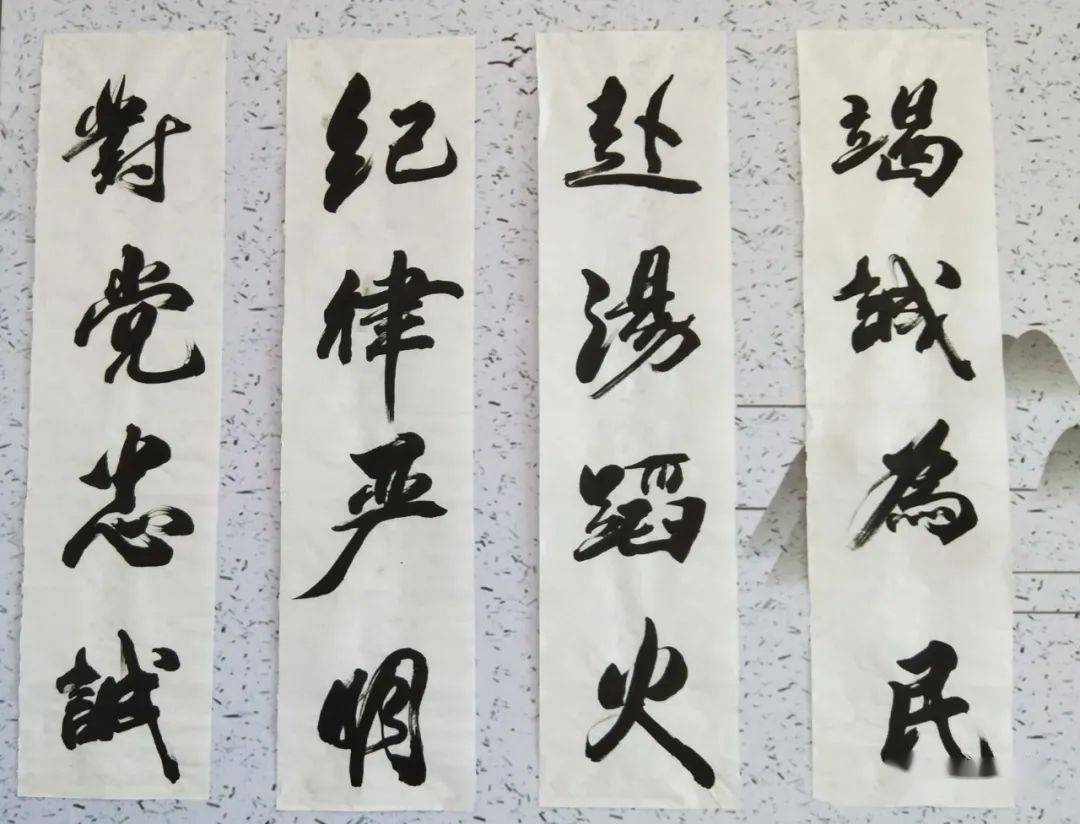 對党忠誠
纪律严明
赴湯蹈火
竭誠為民